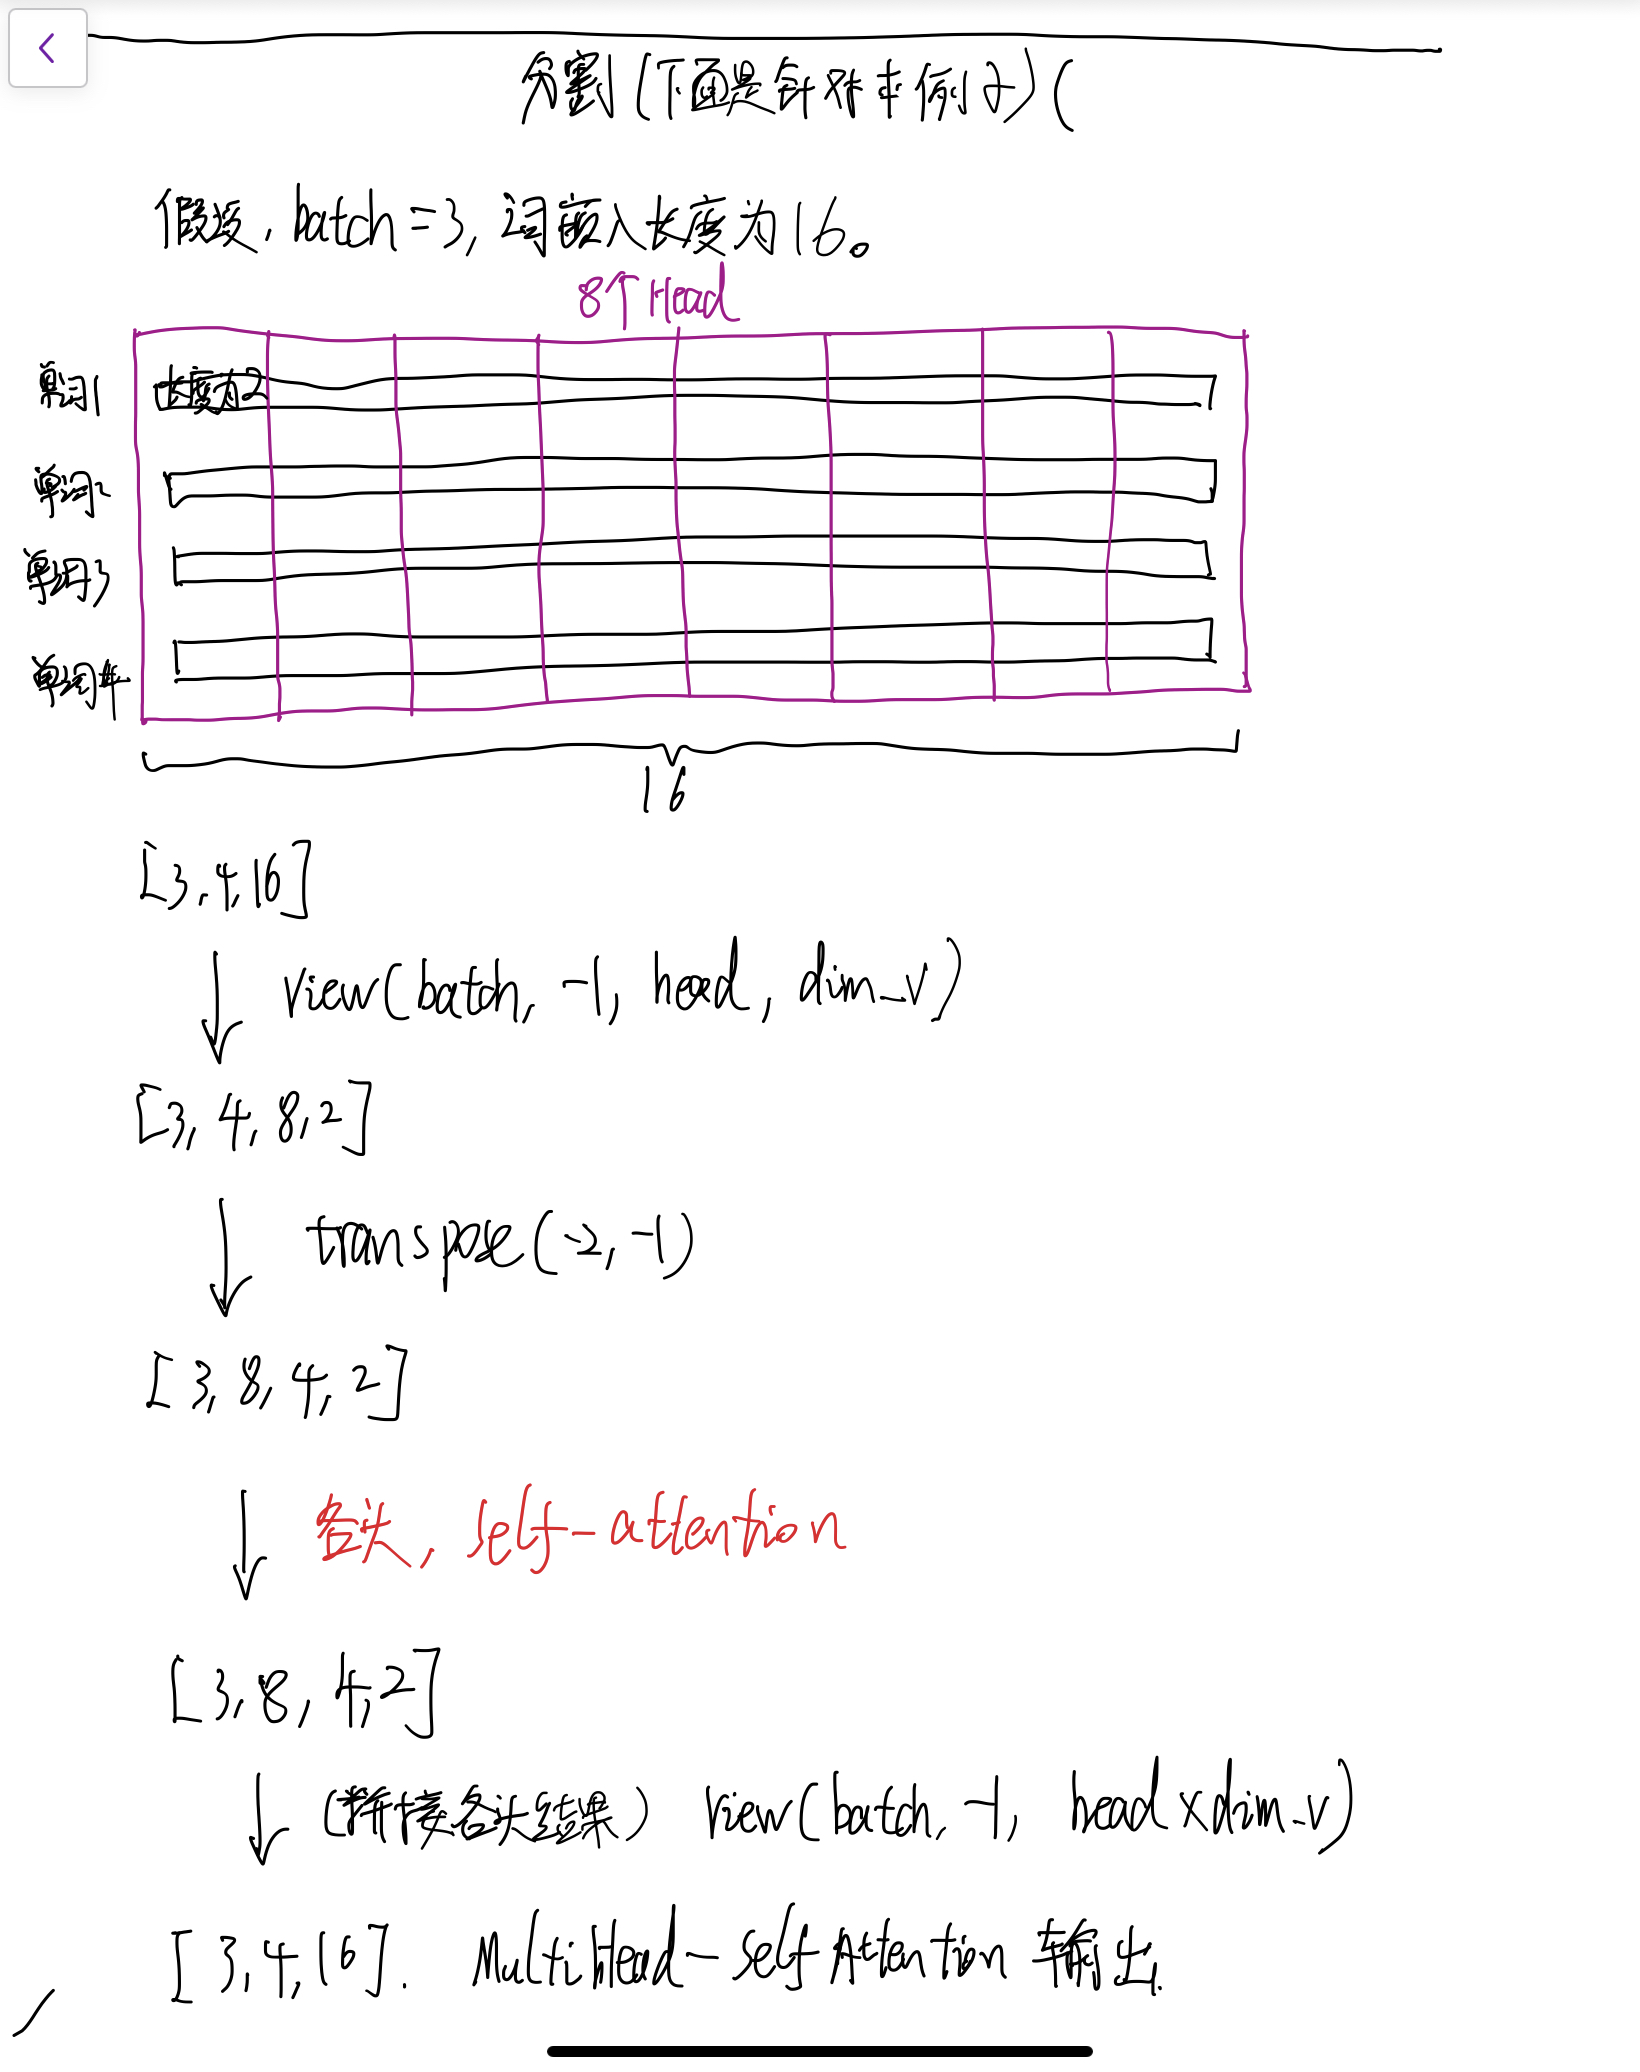 分割(下面是针对本例子)(
假设, batch=3, 词嵌入长度为16。
8个Head
单词1 长度为2
单词2
单词3
单词4
16
[3,4,16]
view(batch, -1, head, dim_v)
[3, 4, 8, 2]
transpose(-2, -1)
[3, 8, 4, 2]
各头, self-attention
[3, 8, 4, 2]
(拼接各头结果) view(batch, -1, head×dim_v)
[3, 4, 16]. MultiHead-self Attention 输出.